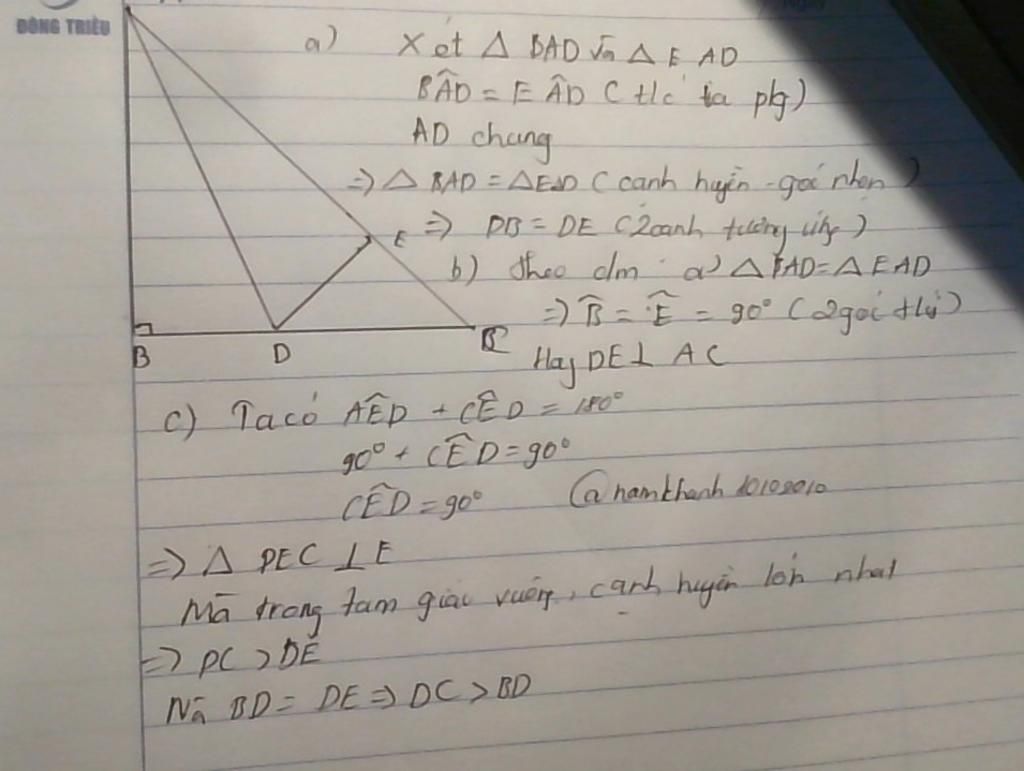 ĐÔNG TRIỀU
a) Xét Δ BAD và Δ EAD
BÂD = EÂD (t/c tia pg)
AD chung
=> Δ BAD = ΔEAD (cạnh huyền - góc nhọn)
E => DB = DE (2 cạnh tương ứng)
b) theo cm a) Δ BAD = Δ EAD
=> B̂ = Ê = 90° (2 góc tư)
Hay DE ⊥ AC
B D C
c) Ta có AÊD + CÊD = 180°
90° + CÊD = 90°
CÊD = 90° @namkhanh10102010
=> Δ DEC ⊥ E
Mà trong tam giác vuông, cạnh huyền lớn nhất
=> DC > DE
Mà BD = DE => DC > BD